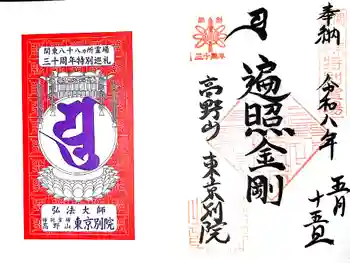 関東八十八ヵ所霊場
三十周年特別巡礼
弘法大師
高野山 東京別院
奉納
令和八年
五月
十五日
遍照金剛
高野山 東京別院
三十周年